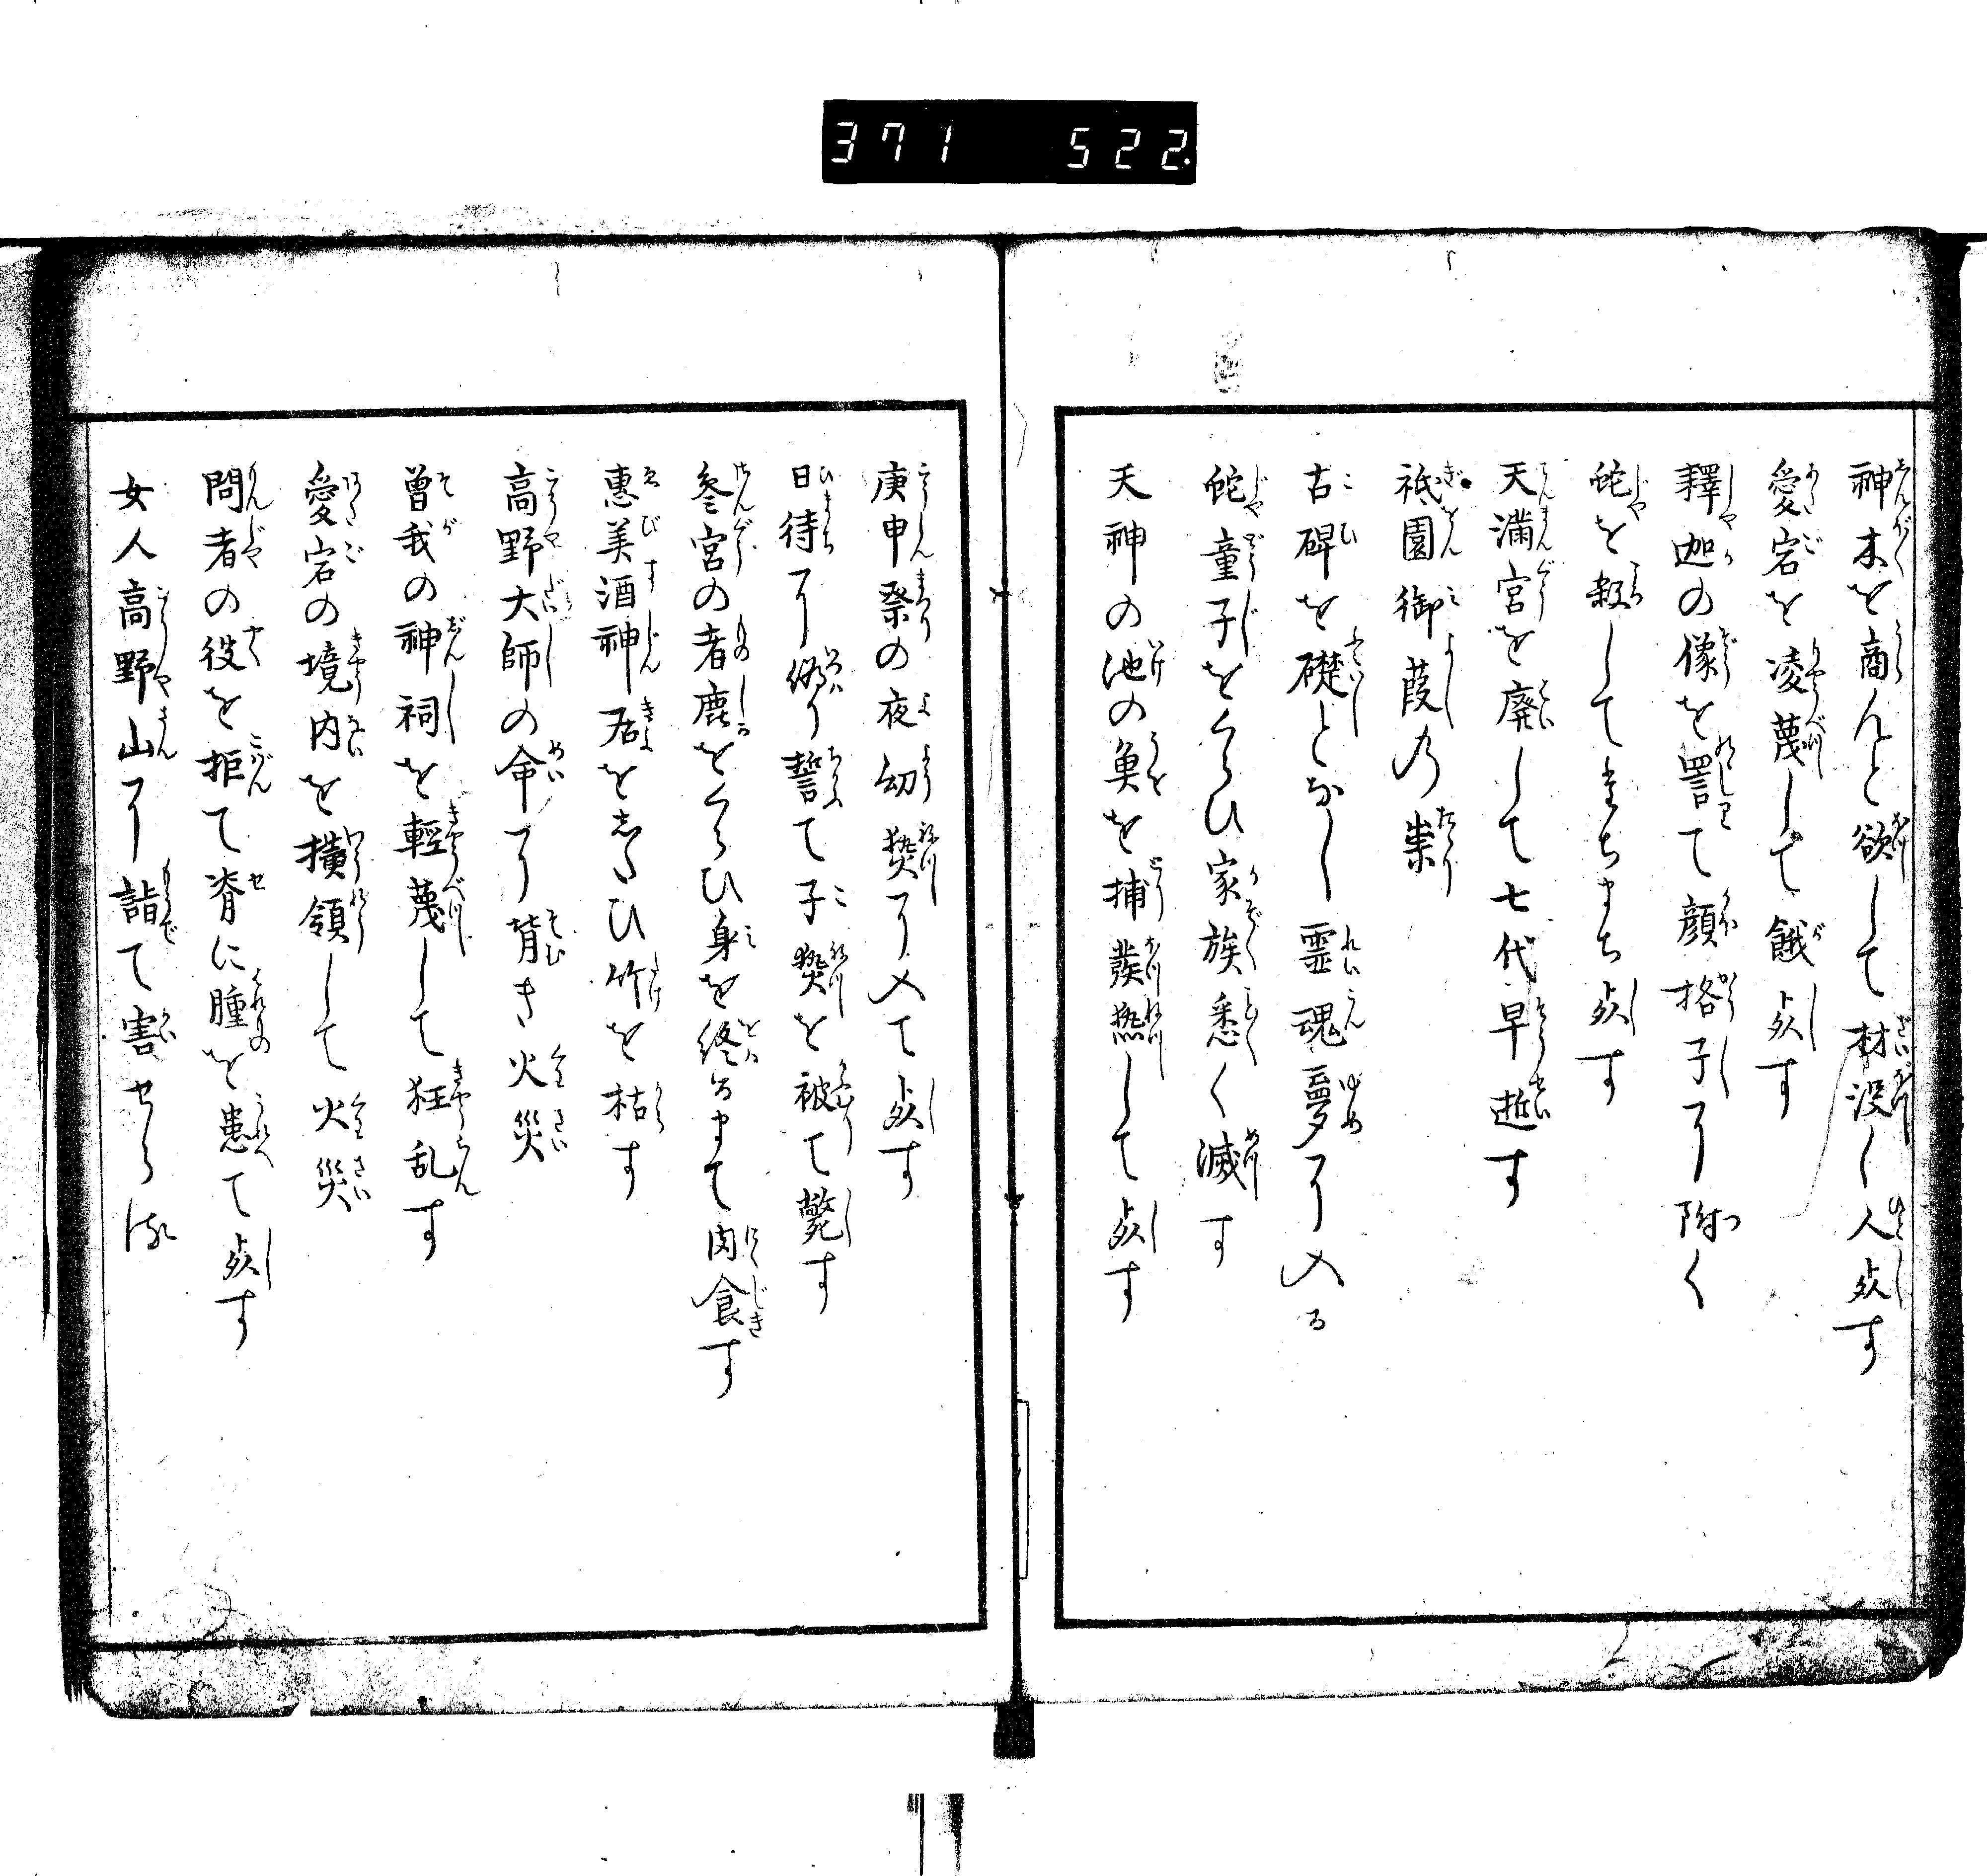 371 522
神木を商んと欲して材没し人死す
愛宕を凌蔑して餓死す
釋迦の像を罵て顔格子に附く
蛇を殺してまちまち死す
天満宮を廃して七代早逝す
祇園御葭の祟
古碑を礎となし霊魂夢に入る
蛇童子をくらひ家族悉く滅す
天神の池の魚を捕発熱して死す
庚申祭の夜幼熱に入て死す
日待に偽り誓て子熱を被て斃す
参宮の者鹿をくらひ身を終るまて肉食す
惠美酒神君をしたひ竹を枯す
高野大師の命に背き火災
曽我の神祠を輕蔑して狂乱す
愛宕の境内を横領して火災
問者の役を拒て脊に腫を患て死す
女人高野山に詣て害せらる